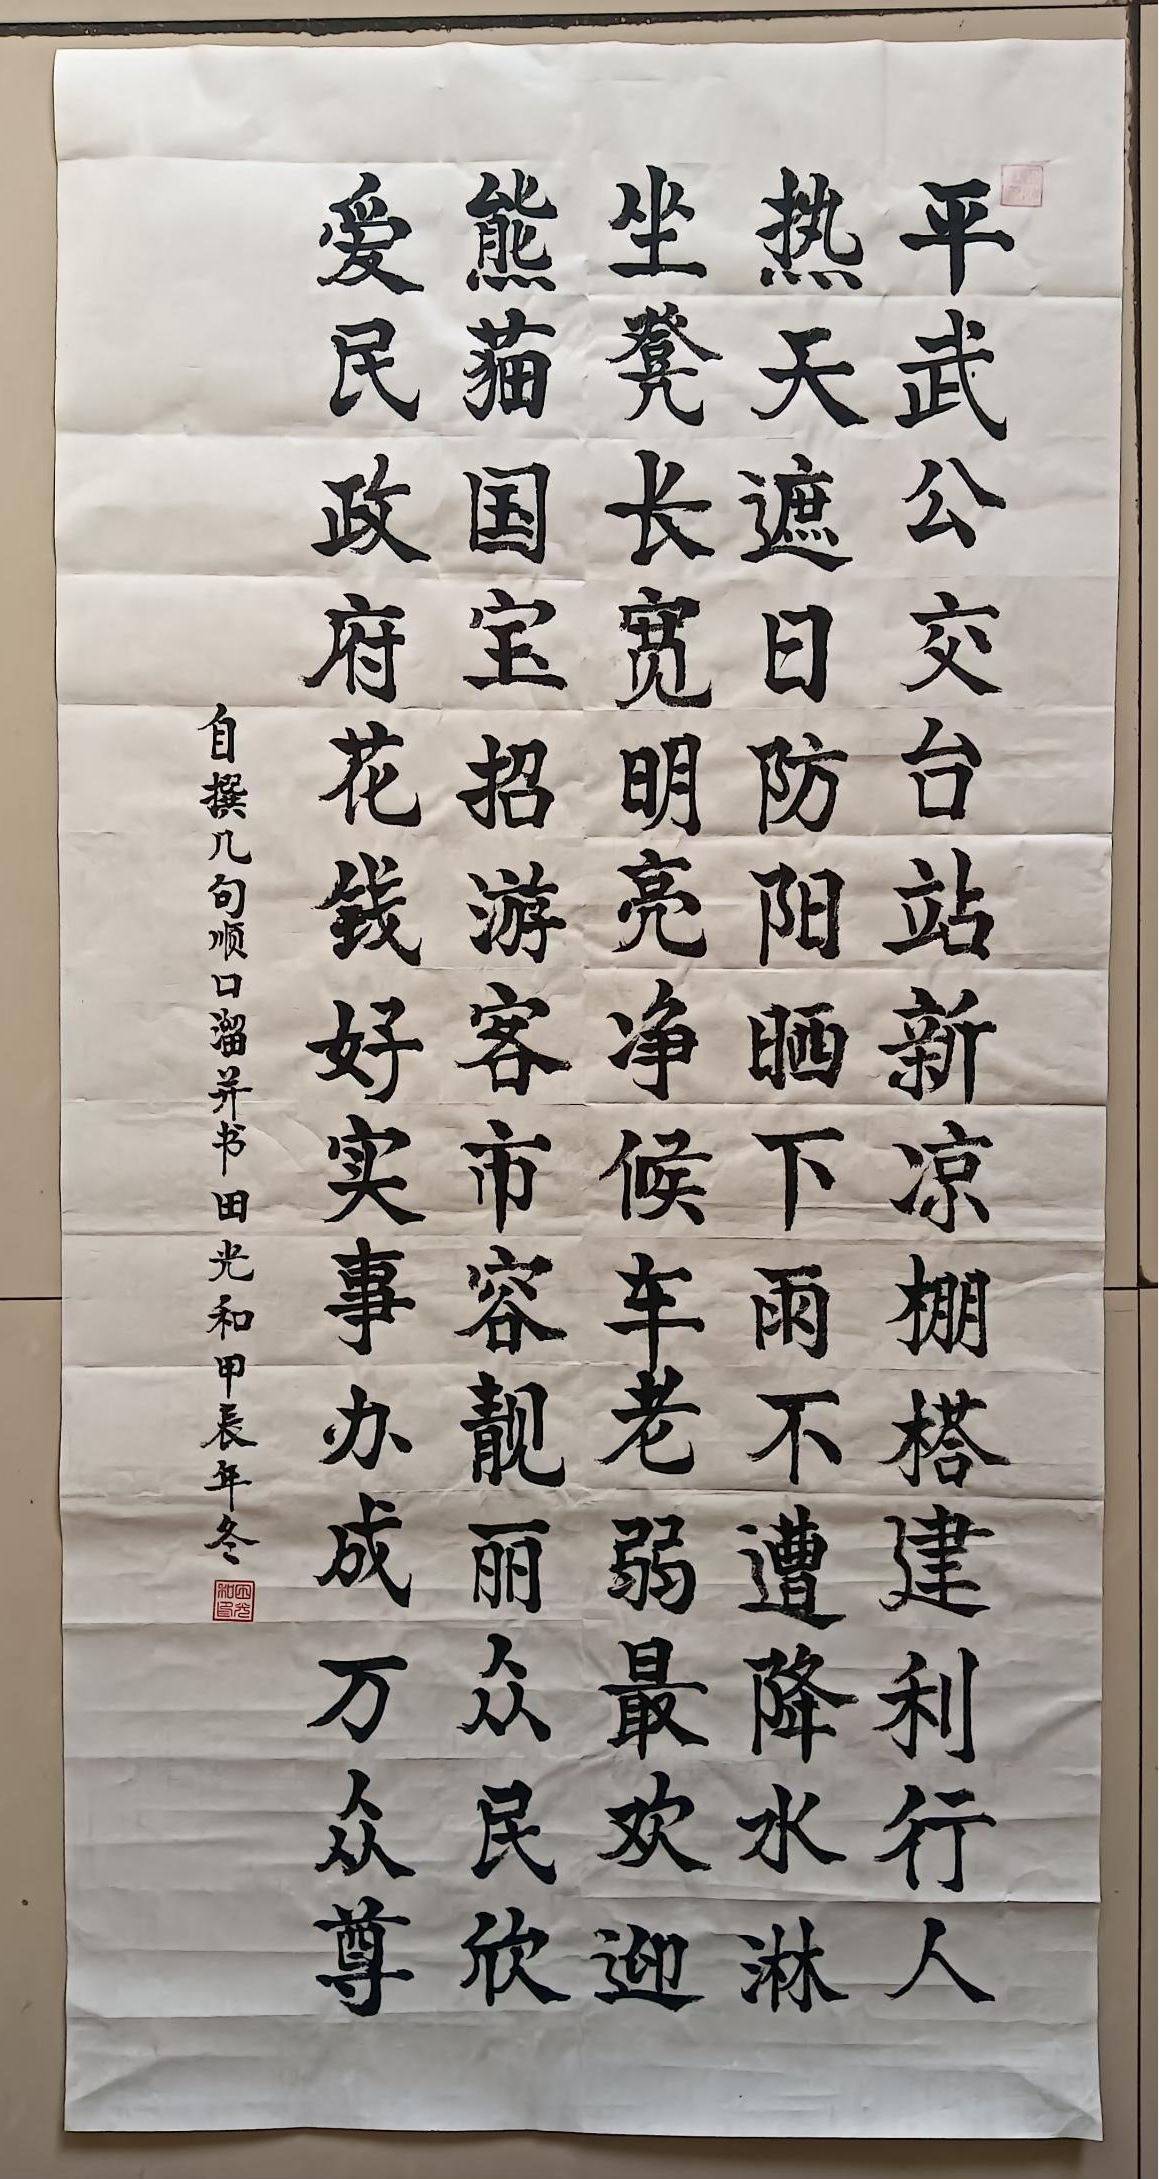 平武公交台站新凉棚搭建利行人
热天遮日防阳晒下雨不遭降水淋
坐凳长宽明亮净候车老弱最欢迎
熊猫国宝招游客市容靓丽众民欣
爱民政府花钱好实事办成万众尊
自撰几句顺口溜并书田光和甲辰年冬